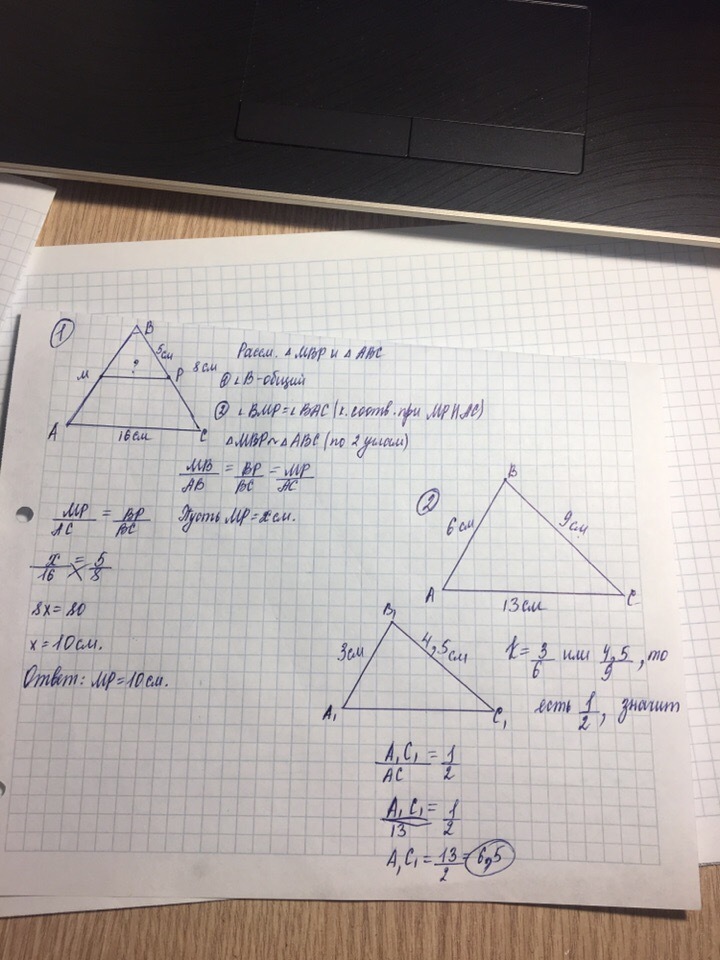 1
B
5см
M
?
P
8см
A
16см
C
Рассм. △MBP и △ABC
① ∠B-общий
② ∠BMP=∠BAC (к. соотв. при MP∥AC)
△MBP~△ABC (по 2 углам)
MB/AB = BP/BC = MP/AC
MP/AC = BP/BC Пусть MP=x см.
x/16 = 5/8
8x=80
x=10см.
Ответ: MP=10см.
2
B
6см
9см
A
13см
C
B₁
3см
4,5см
A₁
C₁
K=3/6 или 4,5/9, то
есть 1/2, значит
A₁C₁/AC = 1/2
A₁C₁/13 = 1/2
A₁C₁=13/2=6,5